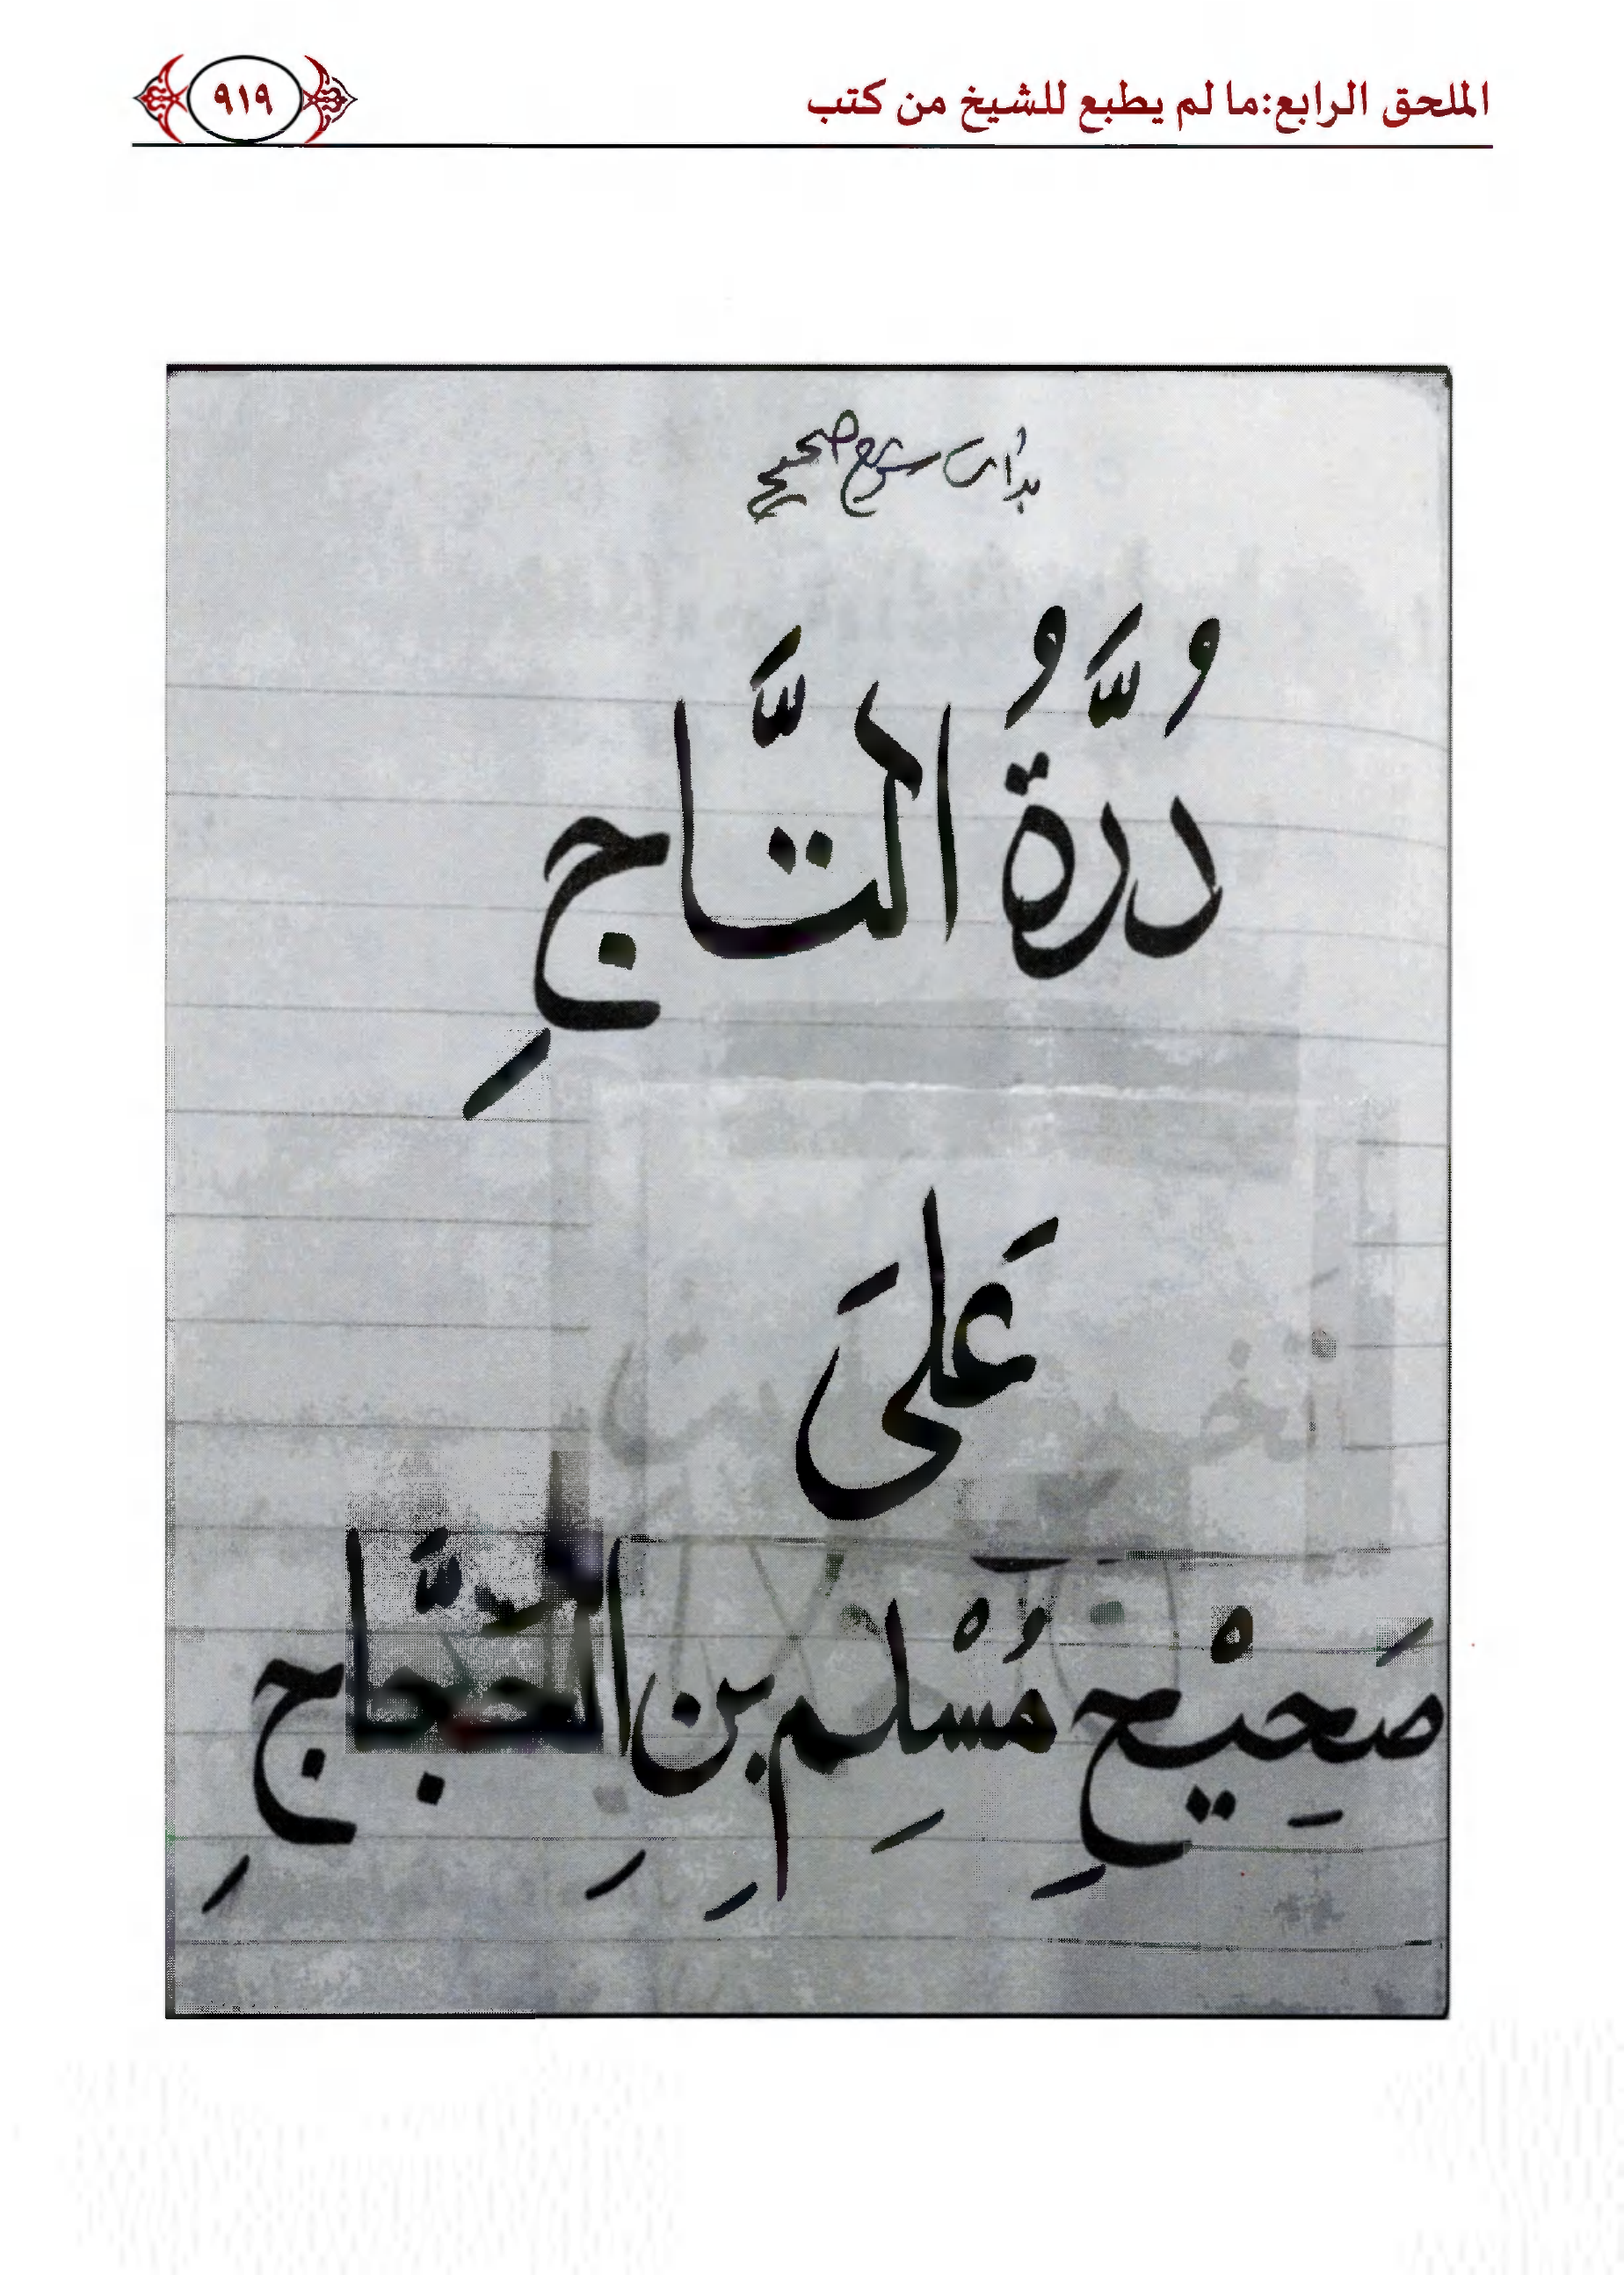 الملحق الرابع:ما لم يطبع للشيخ من كتب
٩١٩
صحيح
دُرَّةُ التَّاجِ
عَلَىَ
صَحِيْحِ مُسْلِمِ بنِ الحجَّاجِ